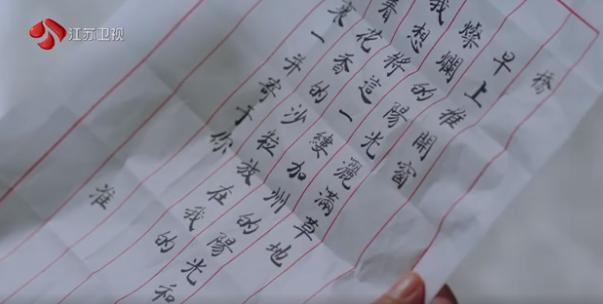 橋
早上推開窗
燦爛的陽光灑滿草地
我想將這一縷加州的陽光和
着花香的沙粒放在我的
裹一并寄于你
准
江苏卫视